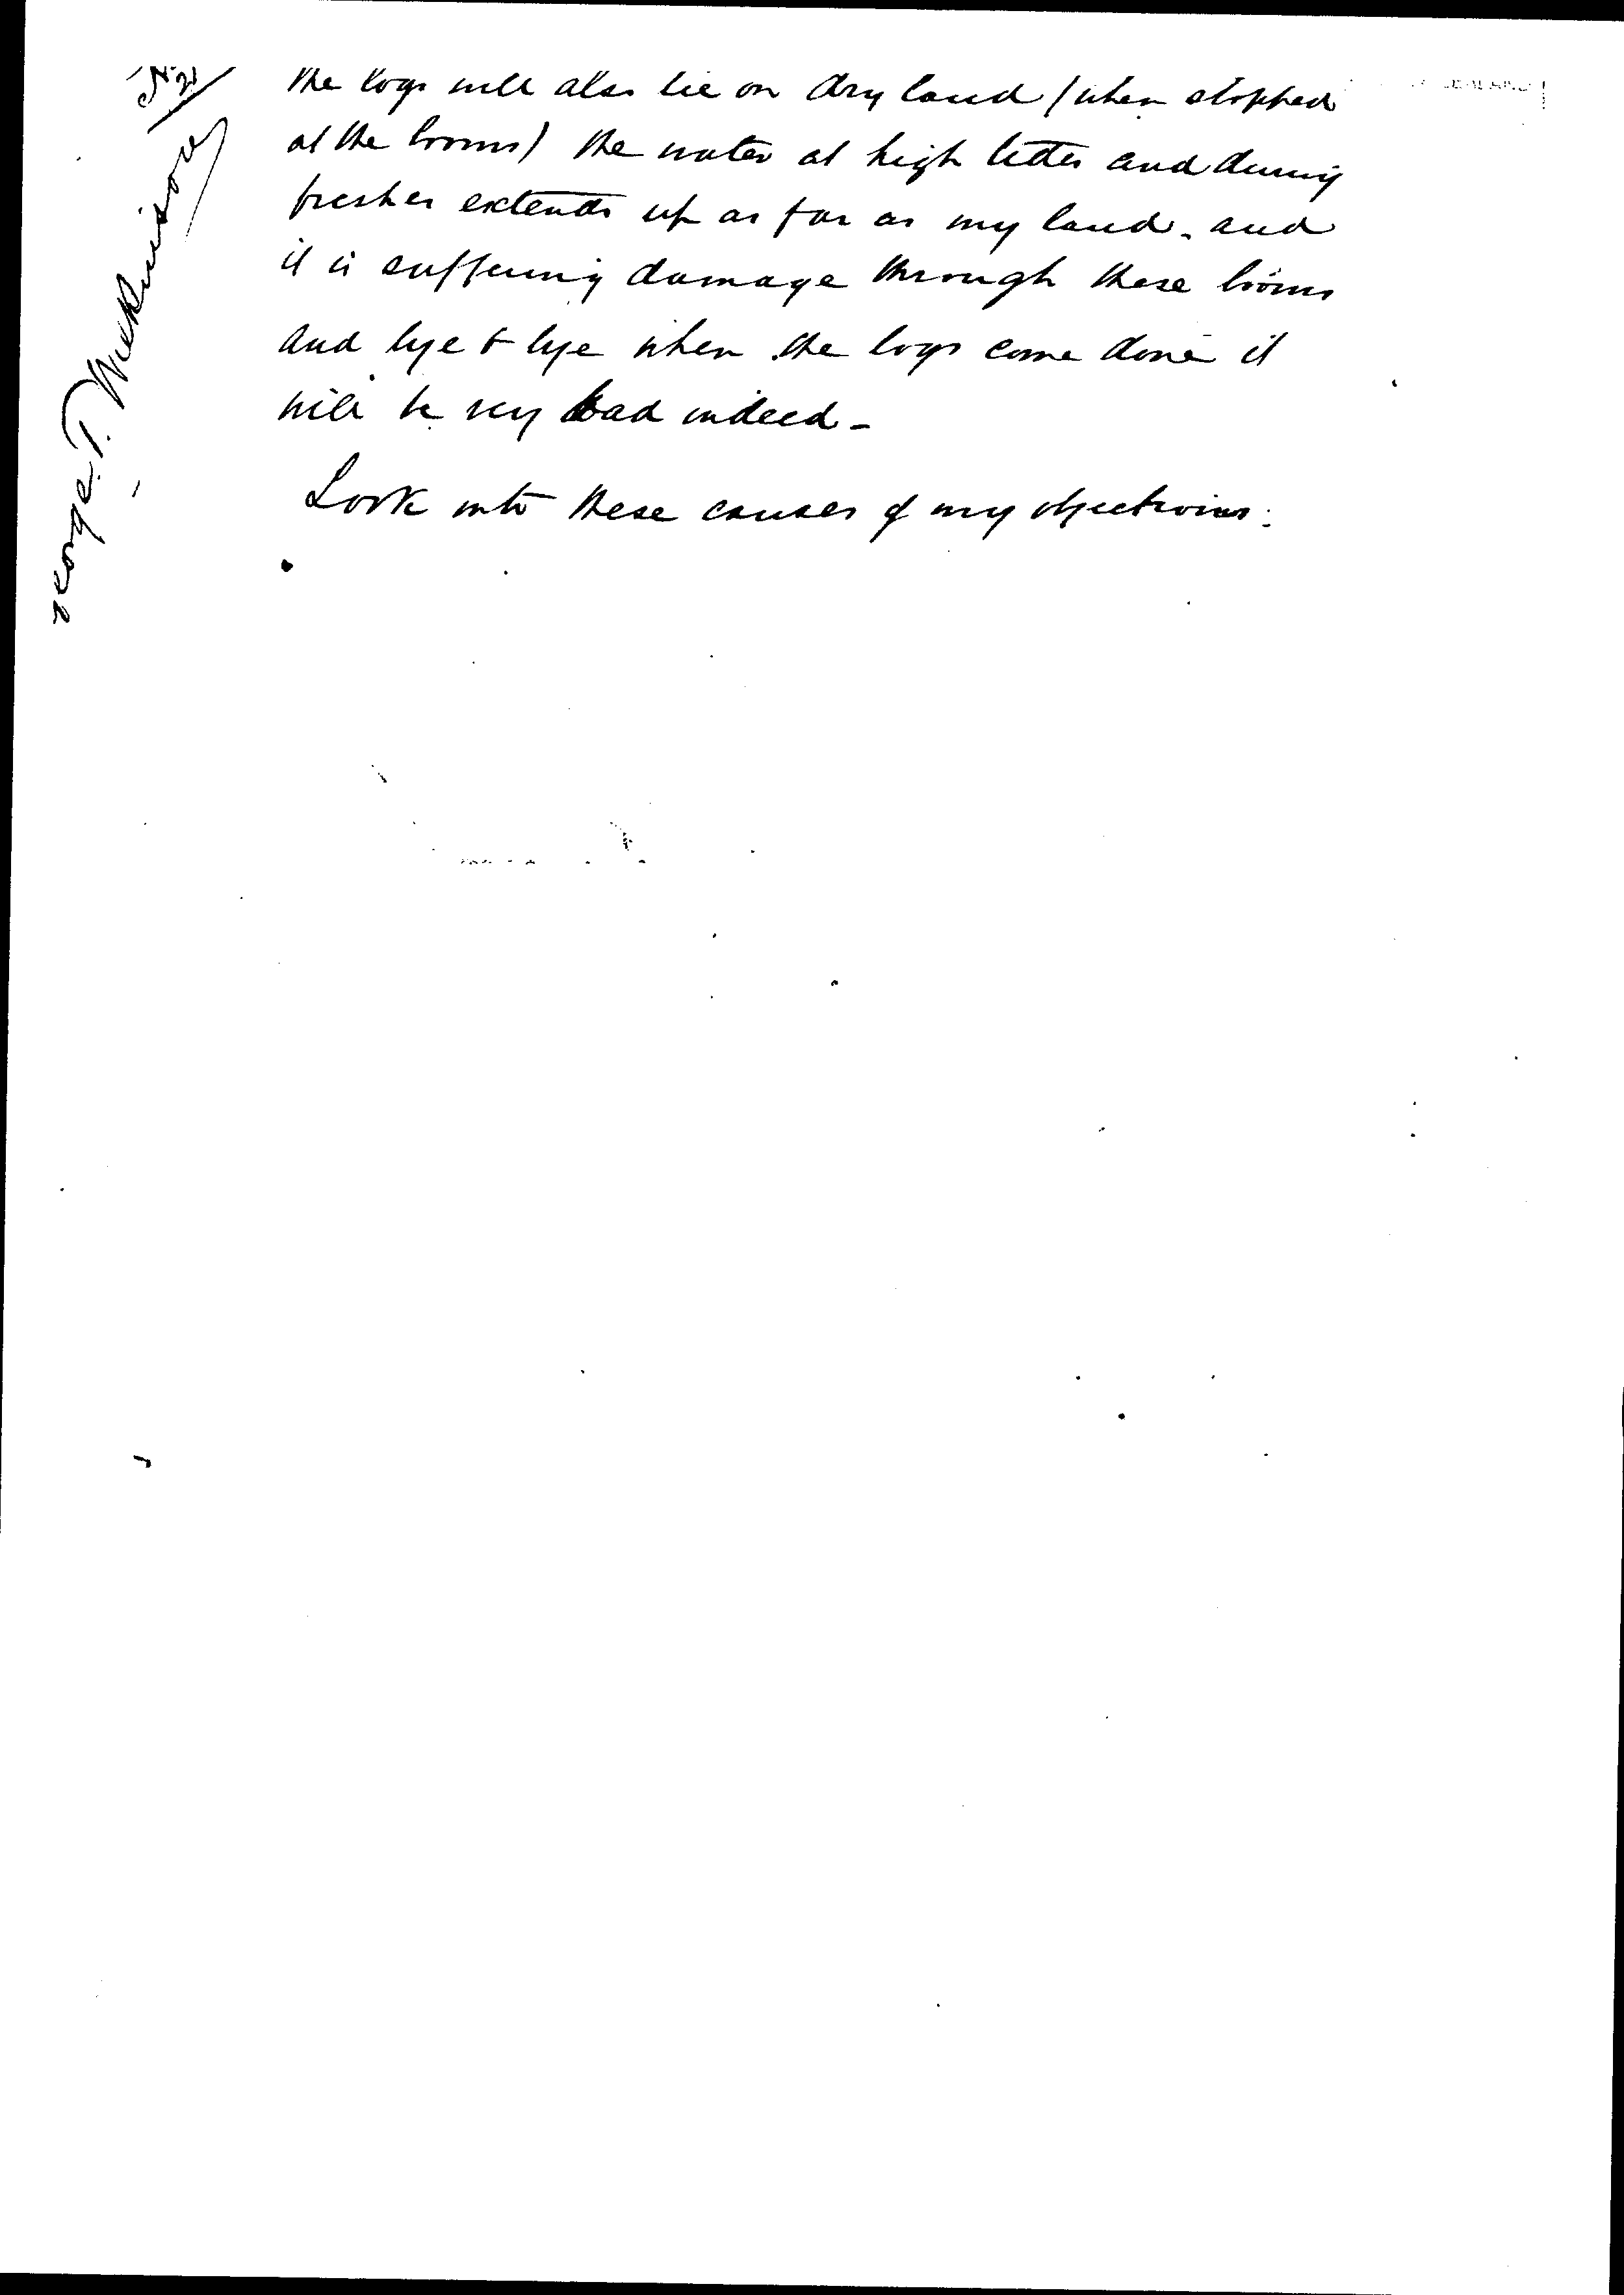 the logs will also lie on dry land (when stopped
at the booms) the water at high tides and during
freshes extends up as far as my land - and
it is suffering damage through these booms
and bye & bye when the logs come done it
will be very bad indeed -
Look into these causes of my objections.
George T. Wilkinson